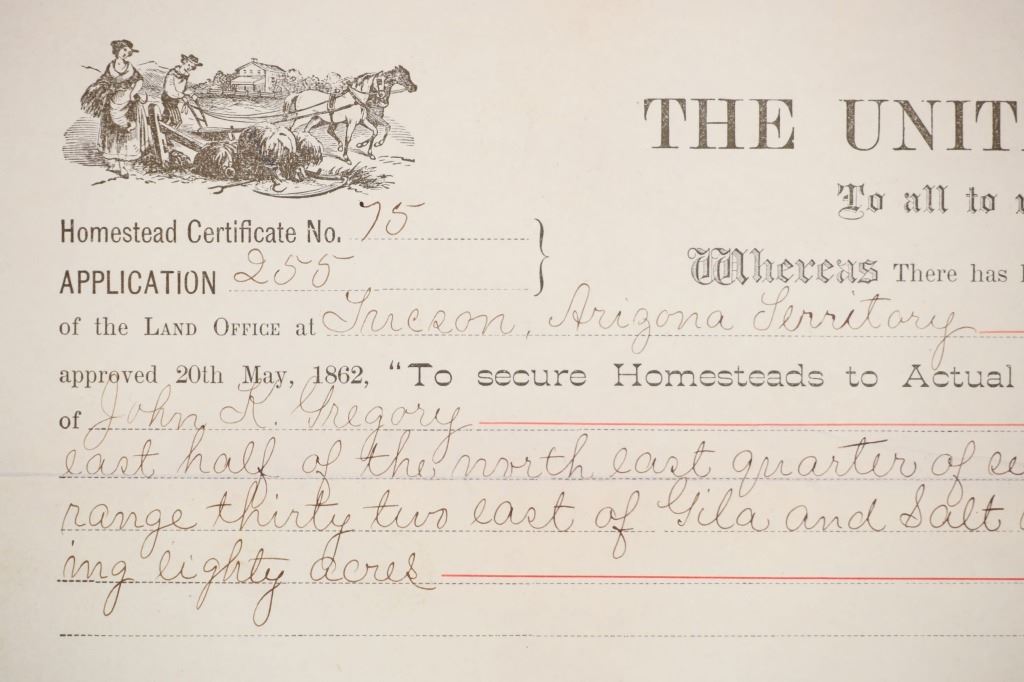 THE UNIT
To all to
Homestead Certificate No. 75
APPLICATION 255
Whereas There has
of the LAND OFFICE at Tucson, Arizona Territory
approved 20th May, 1862, "To secure Homesteads to Actual
of John K. Gregory
east half of the north east quarter of se
range thirty two east of Gila and Salt
ing eighty acres